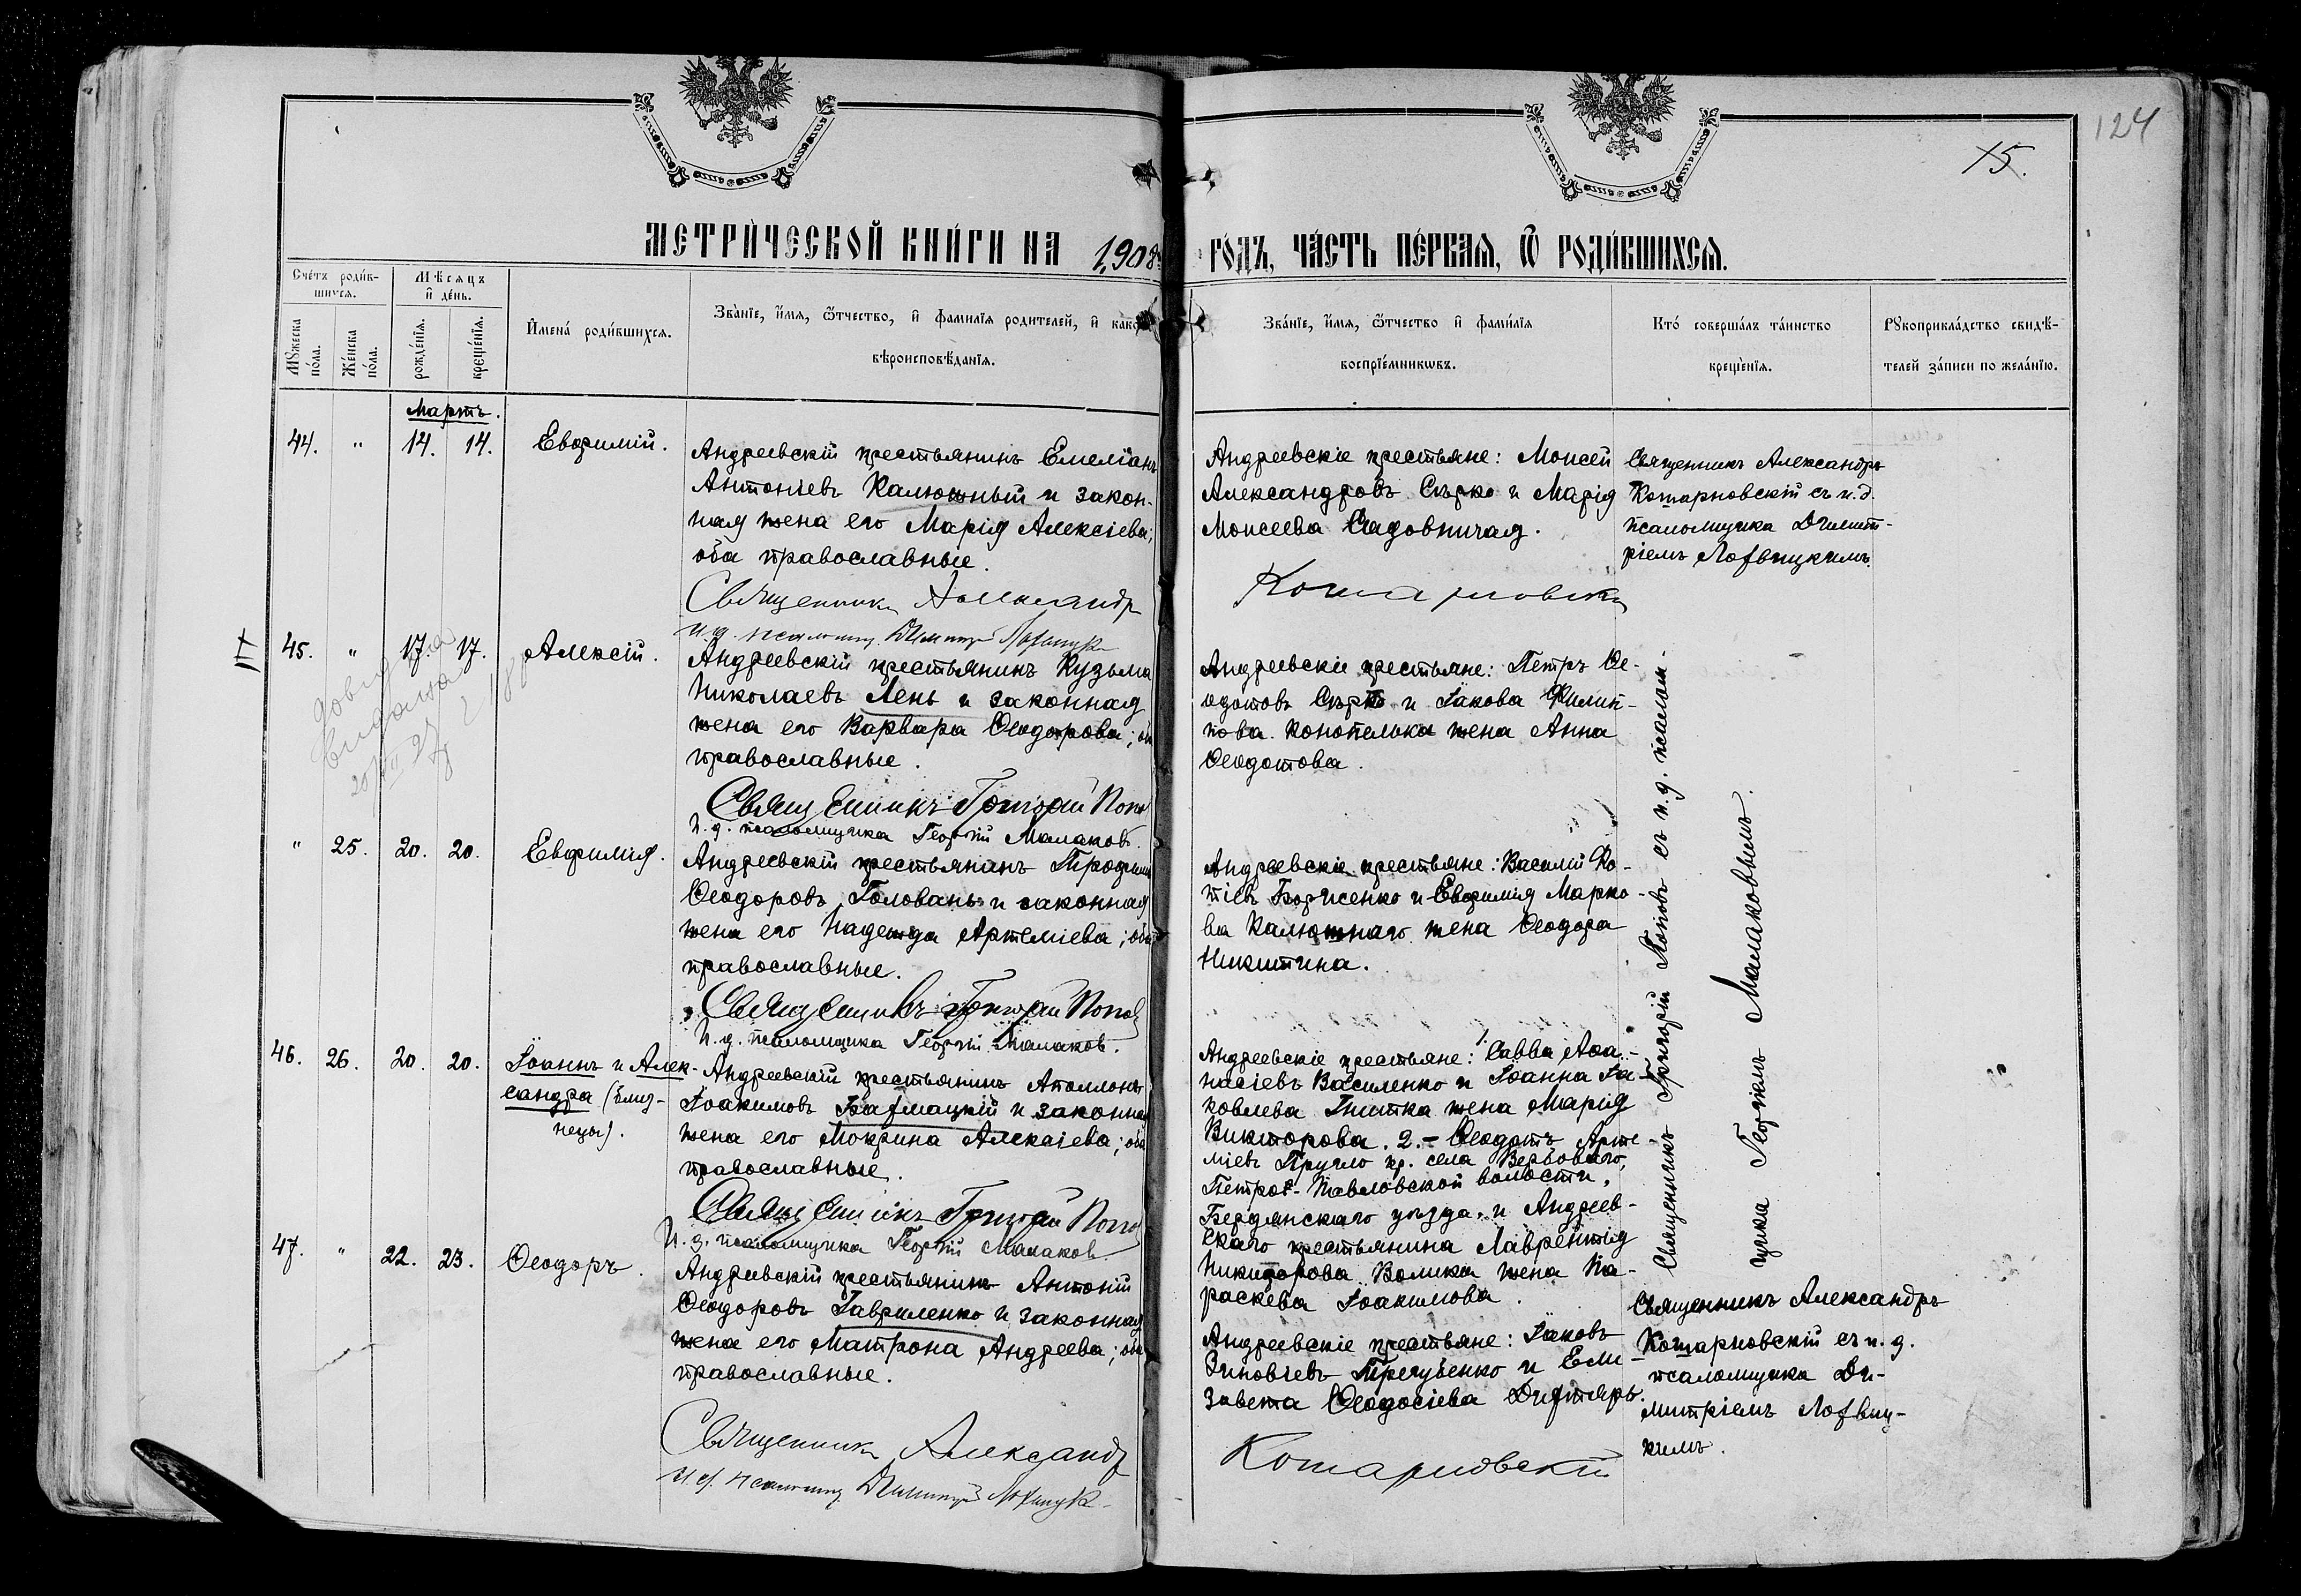 124
15.
МЕТРИ́ЧЕСКОЙ КНИ́ГИ НА 1908 ГО́ДЪ, ЧА́СТЬ ПЕ́РВАЯ, Ѿ РОДИ́ВШИХСЯ.
Сче́тъ роди́в-
шихся.
Мѣсяцъ
и҆ де́нь.
И҆мена́ роди́вшихся.
Зва́нїе, и҆́мя, ѻ҆́тчество, и҆ фамилїѧ родителей, и҆ како
вѣроисповѣ́данїѧ.
Зва́нїе, и҆́мя, ѻ҆́тчество и҆ фами́лїѧ
воспрїе́мникѡвъ.
Кто́ соверша́лъ та́инство
креще́нїѧ.
Рꙋкоприкла́дство свидѣ́-
телей за́писи по жела́нїю.
Мꙋжеска
по́ла.
Же́нска
по́ла.
рожде́нїѧ.
креще́нїѧ.
Мартъ.
44. " 14. 14. Евѳимій.
Андреевскій крестьянинъ Емеліанъ
Антоніевъ Калюжный и закон-
ная жена его Марія Алексіева;
оба православные.
Священникъ Александр
Андреевскіе крестьяне: Моисей
Александровъ Сѣрко и Марія
Моисеева Садовничая.
Котарновскій
Священникъ Александръ
Котарновскій съ и.д.
псаломщика Димит-
ріемъ Лозвицкимъ.
45. " 17. 17. Алексій.
Андреевскій крестьянинъ Кузьма
Николаевъ Лень и законная
жена его Варвара Ѳеодорова; об
православные.
Священникъ Григорій Попов
И.д. псаломщика Георгій Малаковъ.
Андреевскіе крестьяне: Петръ Ѳе-
одотовъ Сѣрко и Іакова Филип-
пова Конопелька жена Анна
Ѳеодотова.
" 25. 20. 20. Евѳимія.
Андреевскій крестьянинъ Трофим
Ѳеодоровъ Головань и законная
жена его Надежда Артеміева; оба
православные.
Священникъ Григорій Попов
И.д. псаломщика Георгій Малаков.
Андреевскіе крестьяне: Василій Фо-
тіевъ Борисенко и Евѳимія Марко-
ва Калюжнаго жена Ѳеодора
Никитина.
46. 26. 20. 20. Іоаннъ и Алек-
сандра (близ-
нецы).
Андреевскій крестьянинъ Аполлонъ
Іоакимовъ Базмацкій и законная
жена его Мокрина Алексіева; оба
православные.
Священникъ Григорій Попов
И.д. псаломщика Георгій Малаков
Андреевскіе крестьяне: 1. Савва Аѳа-
насіевъ Василенко и Іоанна Іа-
ковлева Гнитка жена Марія
Викторова. 2.- Ѳеодотъ Арте-
міевъ Пругло кр. села Вербоваго,
Петро-Павловской волости,
Бердянскаго уѣзда, и Андреев-
скаго крестьянина Лаврентія
Никифорова Волика жена Па-
раскева Іоакимова.
Священникъ Григорій Поповъ съ и.д. псалом-
щика Георгіемъ Малаковымъ.
47. " 22. 23. Ѳеодоръ.
Андреевскій крестьянинъ Антоній
Ѳеодоровъ Гавриленко и законная
жена его Матрона Андреева; оба
православные.
Священникъ Александр
Андреевскіе крестьяне: Іаковъ
Зиновіевъ Трегубенко и Ели-
завета Ѳеодосіева Дигтярь.
Котарновскій
Священникъ Александръ
Котарновскій съ и.д.
псаломщика Ди-
митріемъ Лозвиц-
кимъ.